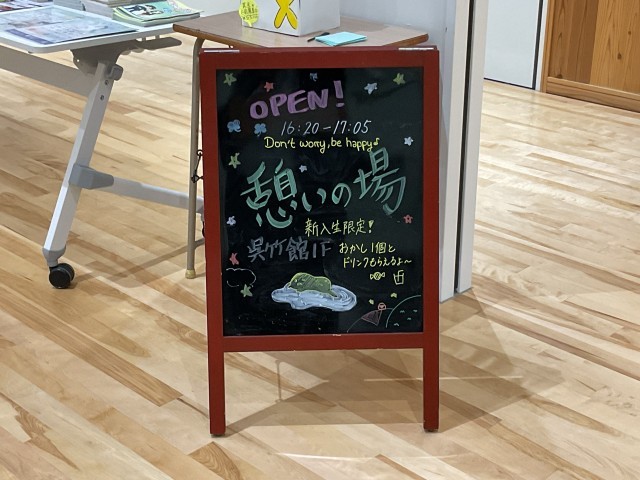 OPEN!
16:20-17:05
Don't worry, be happy♪
憩いの場
新入生限定!
呉竹館1F
おかし1個と
ドリンクもらえるよ〜